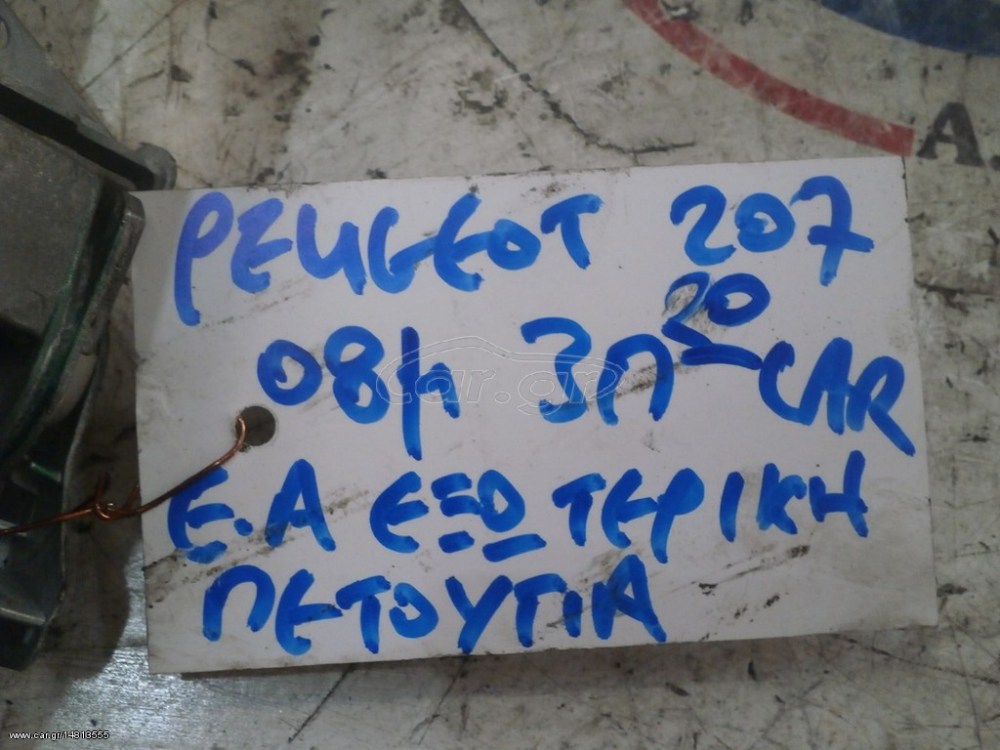 A.
PEUGEOT 207
08μ 3Π 20 CAR
Ε.Α ΕΞΩΤΕΡΙΚΗ
ΠΕΤΟΥΓΙΑ
car.gr
www.car.gr/14313555